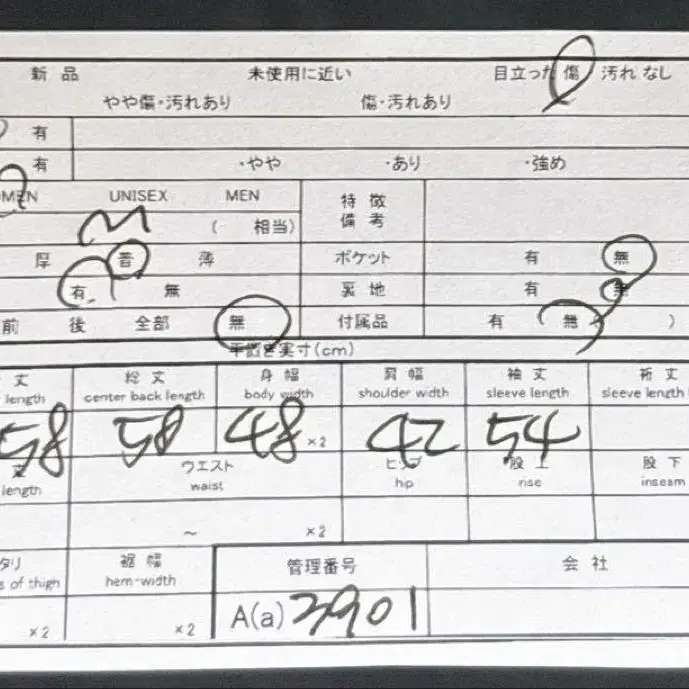 新品 未使用に近い 目立った傷 汚れ なし
やや傷・汚れあり 傷・汚れあり
有
有 ・やや ・あり ・強め
MEN UNISEX MEN 特徴
M ( 相当) 備考
厚 普 薄 ポケット 有 無
有 無 裏地 有 無
前 後 全部 無 付属品 有 ( 無 )
平置き実寸(cm)
丈 総丈 身幅 肩幅 袖丈 裄丈
length center back length body width shoulder width sleeve length sleeve length
58 58 48 ×2 42 54
丈 ウエスト ヒップ 股上 股下
length waist hip rise inseam
~ ×2
タリ 裾幅 管理番号 会社
s of thigh hem-width
×2 ×2 A(a) 3901